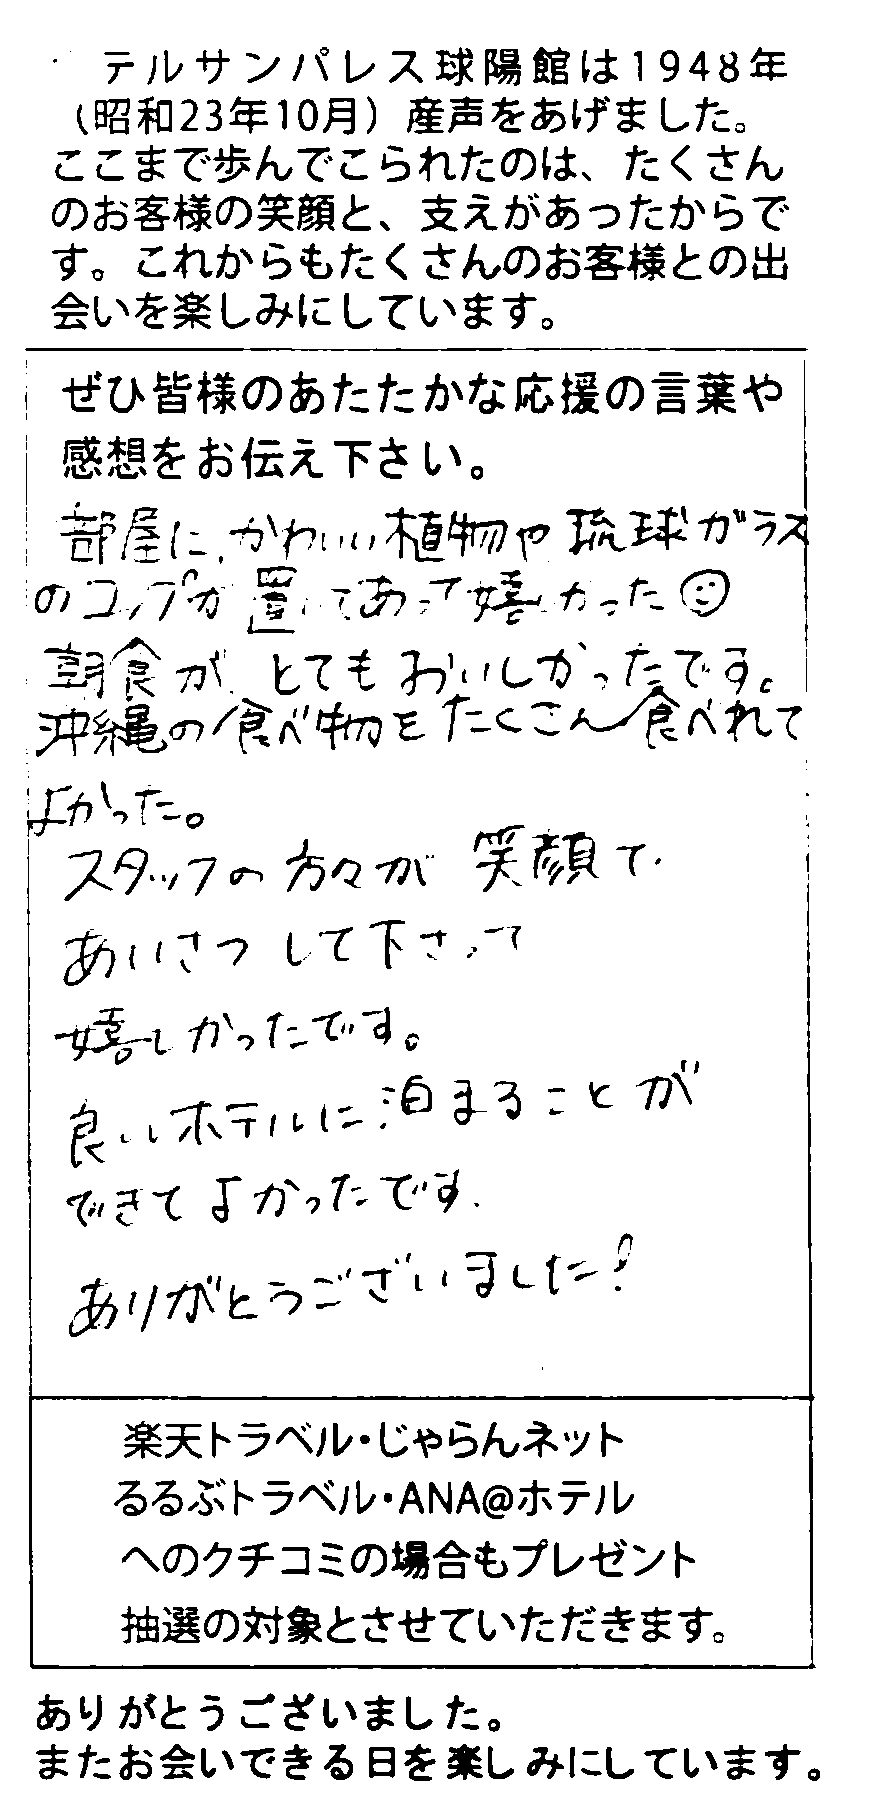 テルサンパレス球陽館は1948年
(昭和23年10月）産声をあげました。
ここまで歩んでこられたのは、たくさん
のお客様の笑顔と、支えがあったからで
す。これからもたくさんのお客様との出
会いを楽しみにしています。
ぜひ皆様のあたたかな応援の言葉や
感想をお伝え下さい。
部屋に、かわいい植物や琉球ガラス
のコップが置いてあって嬉しかった☺
朝食が、とてもおいしかったです。
沖縄の食べ物をたくさん食べれて
よかった。
スタッフの方々が笑顔で
あいさつして下さって
嬉しかったです。
良いホテルに泊まることが
できてよかったです。
ありがとうございました!
楽天トラベル・じゃらんネット
るるぶトラベル・ANA@ホテル
へのクチコミの場合もプレゼント
抽選の対象とさせていただきます。
ありがとうございました。
またお会いできる日を楽しみにしています。